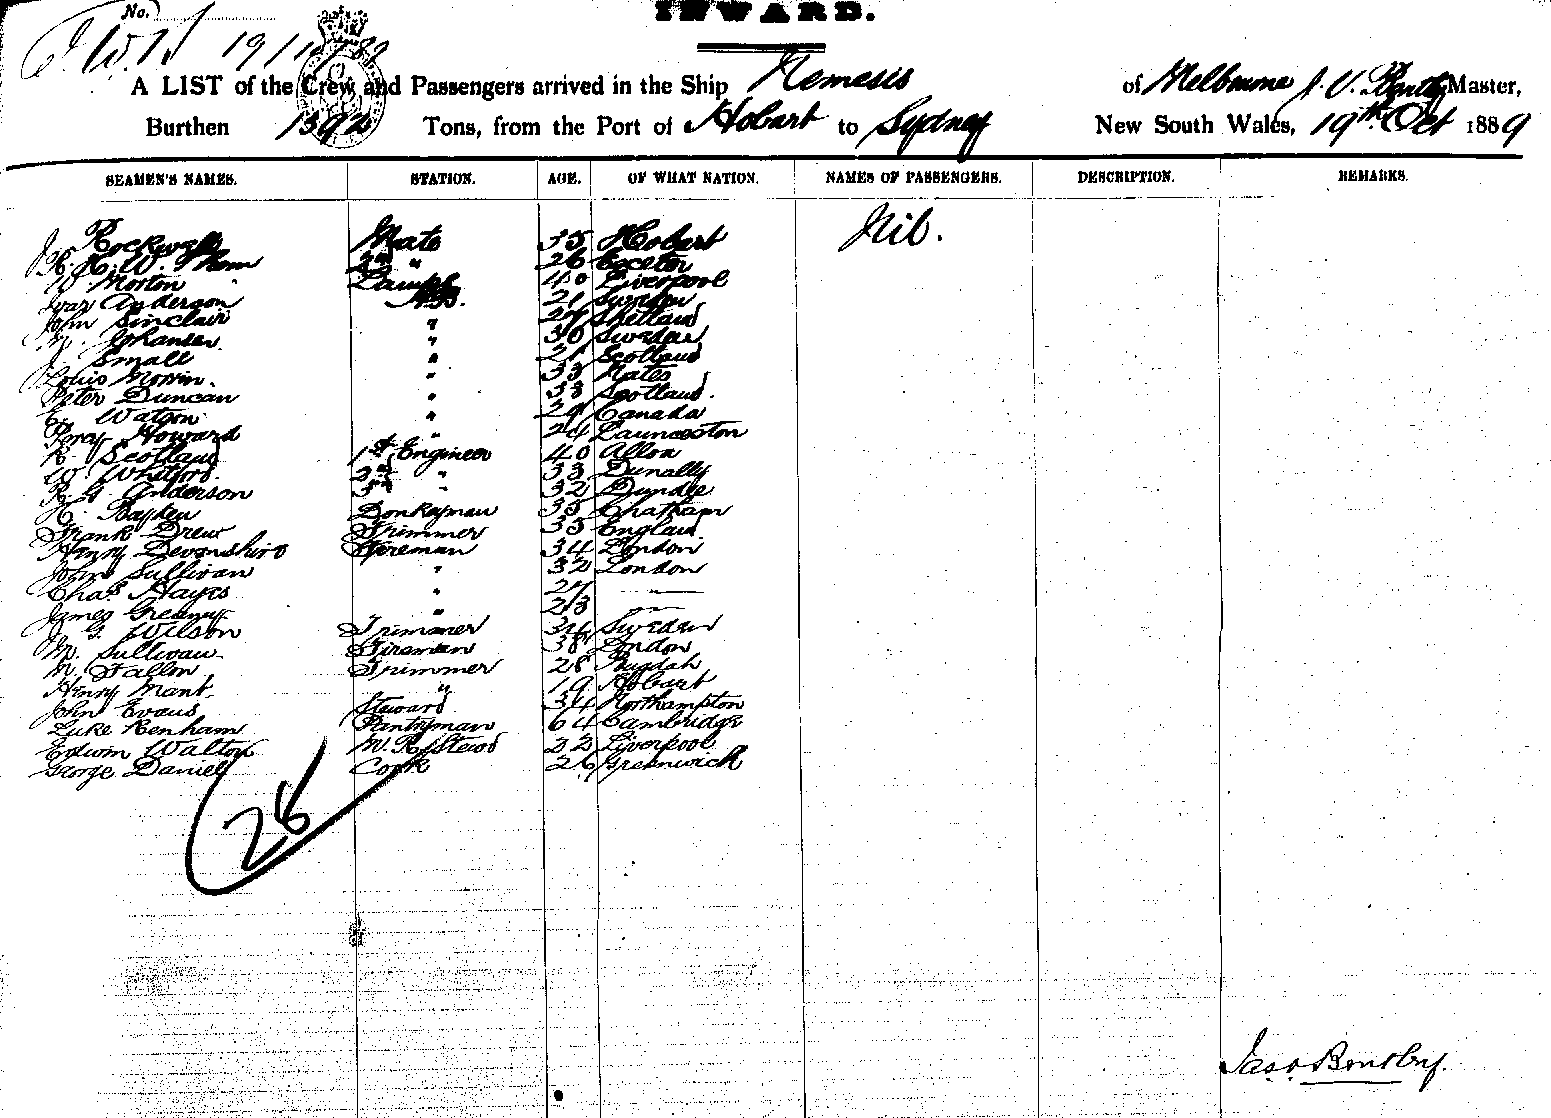 No.
19/10/89
INWARD.
A LIST of the Crew and Passengers arrived in the Ship Nemesis of Melbourne Master,
Burthen 1392 Tons, from the Port of Hobart to Sydney New South Wales, 19th Oct 1889
SEAMEN'S NAMES. STATION. AGE. OF WHAT NATION. NAMES OF PASSENGERS. DESCRIPTION. REMARKS.
J. Rockwell Mate 35 Hobart Nil.
2nd " 26 Exeter
W Morton Lamps 40 Liverpool
Ivar Anderson A.B. 21 Sweden
John Sinclair " 27 Shetland
Johansen " 30 Sweden
J. Small " 21 Scotland
Louis " 33
Peter Duncan " 33 Scotland.
Watson " 29 Canada
Percy Howard " 24 Launceston
R. Scotland 1st Engineer 40 Alloa
W. Whitford 2nd " 33 Dunally
R. G. Anderson 3rd " 32 Dundee
H. Donkeyman 35 Chatham
Frank Drew Trimmer 35 England
Henry Devonshire Fireman 34 London
John Sullivan " 32 London
Chas Hayes " 27 —
James " 23 —
J. G. Wilson Trimmer 34 Sweden
M. Sullivan Fireman 38 London
M. Fallon Trimmer 28
Henry Mant " 19 Hobart
John Evans Steward 34 Northampton
Luke Kenham Pantryman 64 Cambridge
Edwin Walton Liverpool
George Daniel Cook 26 Greenwich
28